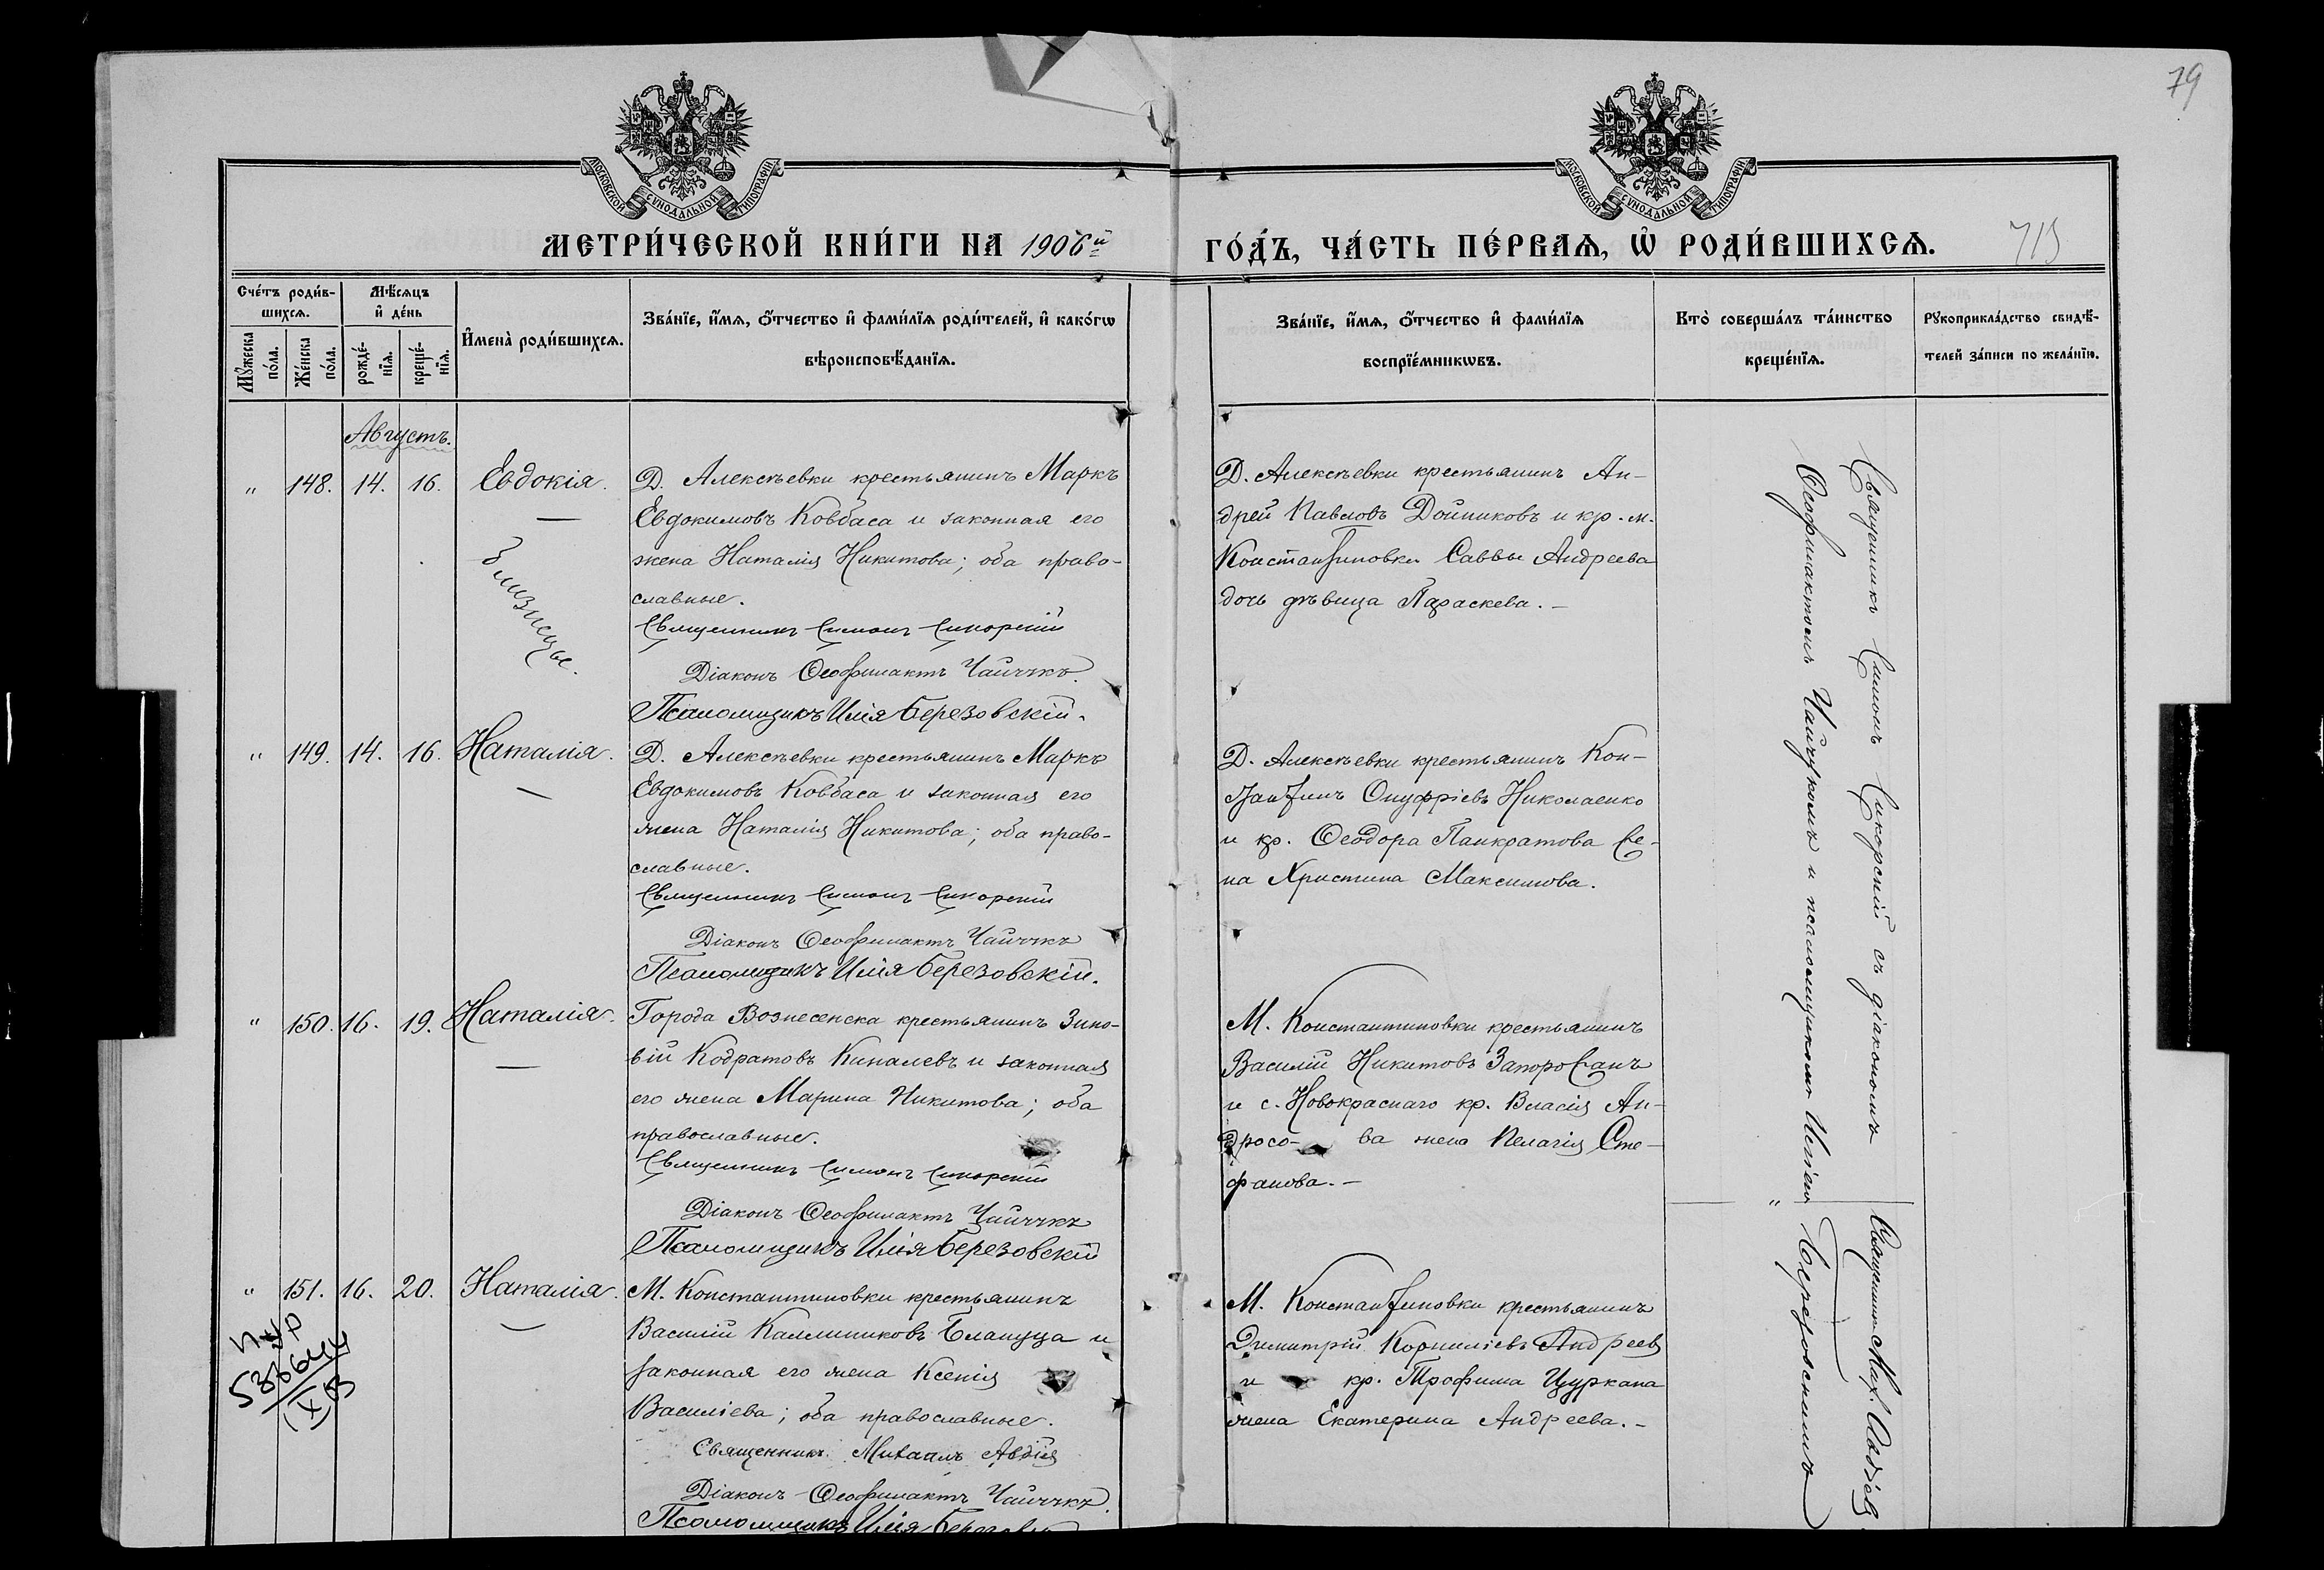 79
МОСКОВСКОЙ СѴНОДАЛЬНОЙ ТИПОГРАФІИ
МОСКОВСКОЙ СѴНОДАЛЬНОЙ ТИПОГРАФІИ
МЕТРИ́ЧЕСКОЙ КНИ́ГИ НА 1906й
ГО́ДЪ, ЧА́СТЬ ПЕ́РВАѦ, Ѡ҆ РОДИ́ВШИХСѦ.
715
Сче́тъ роди́в-
шихсѧ.
Мꙋжеска
по́ла.
Же́нска
по́ла.
Мѣ́сѧцъ
и҆ де́нь
рожде́-
нїѧ.
креще́-
нїѧ.
И҆мена̀ роди́вшихсѧ.
Зва́нїе, и҆́мѧ, ѻ҆́тчество и҆ фами́лїѧ роди́телей, и҆ како́гѡ
вѣроисповѣ́данїѧ.
Зва́нїе, и҆́мѧ, ѻ҆́тчество и҆ фами́лїѧ
воспрїе́мникѡвъ.
Кто̀ соверша́лъ та́инство
креще́нїѧ.
Рꙋкоприкла́дство свидѣ́-
телей за́писи по жела́нїю.
Августъ.
" 148. 14. 16. Евдокія.
близнецы.
Д. Алексѣевки крестьянинъ Маркъ
Евдокимовъ Ковбаса и законная его
жена Наталія Никитова; оба право-
славные.
Священникъ Симонъ Сикорскій
Діаконъ Ѳеофилактъ Чайчукъ.
Псаломщикъ Илія Березовскій.
Д. Алексѣевки крестьянинъ Ан-
дрей Павловъ Дойниковъ и кр. м.
Константиновки Саввы Андреева
дочь дѣвица Параскева. –
" 149. 14. 16. Наталія.
Д. Алексѣевки крестьянинъ Маркъ
Евдокимовъ Ковбаса и законная его
жена Наталія Никитова; оба право-
славные.
Священникъ Симонъ Сикорскій
Діаконъ Ѳеофилактъ Чайчукъ
Псаломщикъ Илія Березовскій.
Д. Алексѣевки крестьянинъ Кон-
стантинъ Онуфріевъ Николаенко
и кр. Ѳеодора Панкратова же-
на Христина Максимова.
" 150. 16. 19. Наталія.
Города Вознесенска крестьянинъ Зино-
вій Кодратовъ Киналевъ и законная
его жена Марина Никитова; оба
православные.
Священникъ Симонъ Сикорскій
Діаконъ Ѳеофилактъ Чайчукъ
Псаломщикъ Илія Березовскій
М. Константиновки крестьянинъ
Василій Никитовъ Запорожанъ
и с. Новокраснаго кр. Власія Ан-
дросо- ва жена Пелагія Сте-
фанова. –
" 151. 16. 20. Наталія.
М. Константиновки крестьянинъ
Василій Каллиниковъ Блануца и
законная его жена Ксенія
Василіева; оба православные.
Священникъ Михаилъ Авдіевъ
Діаконъ Ѳеофилактъ Чайчукъ.
Псаломщикъ Илія
М. Константиновки крестьянинъ
Димитрій Корниліевъ Андреевъ
и кр. Трофима Цуркана
жена Екатерина Андреева. –
Священникъ Симонъ Сикорскій съ діакономъ
Ѳеофилактомъ Чайчукомъ и псаломщикомъ Иліею Березовскимъ
Священникъ Мих. Авдіевъ